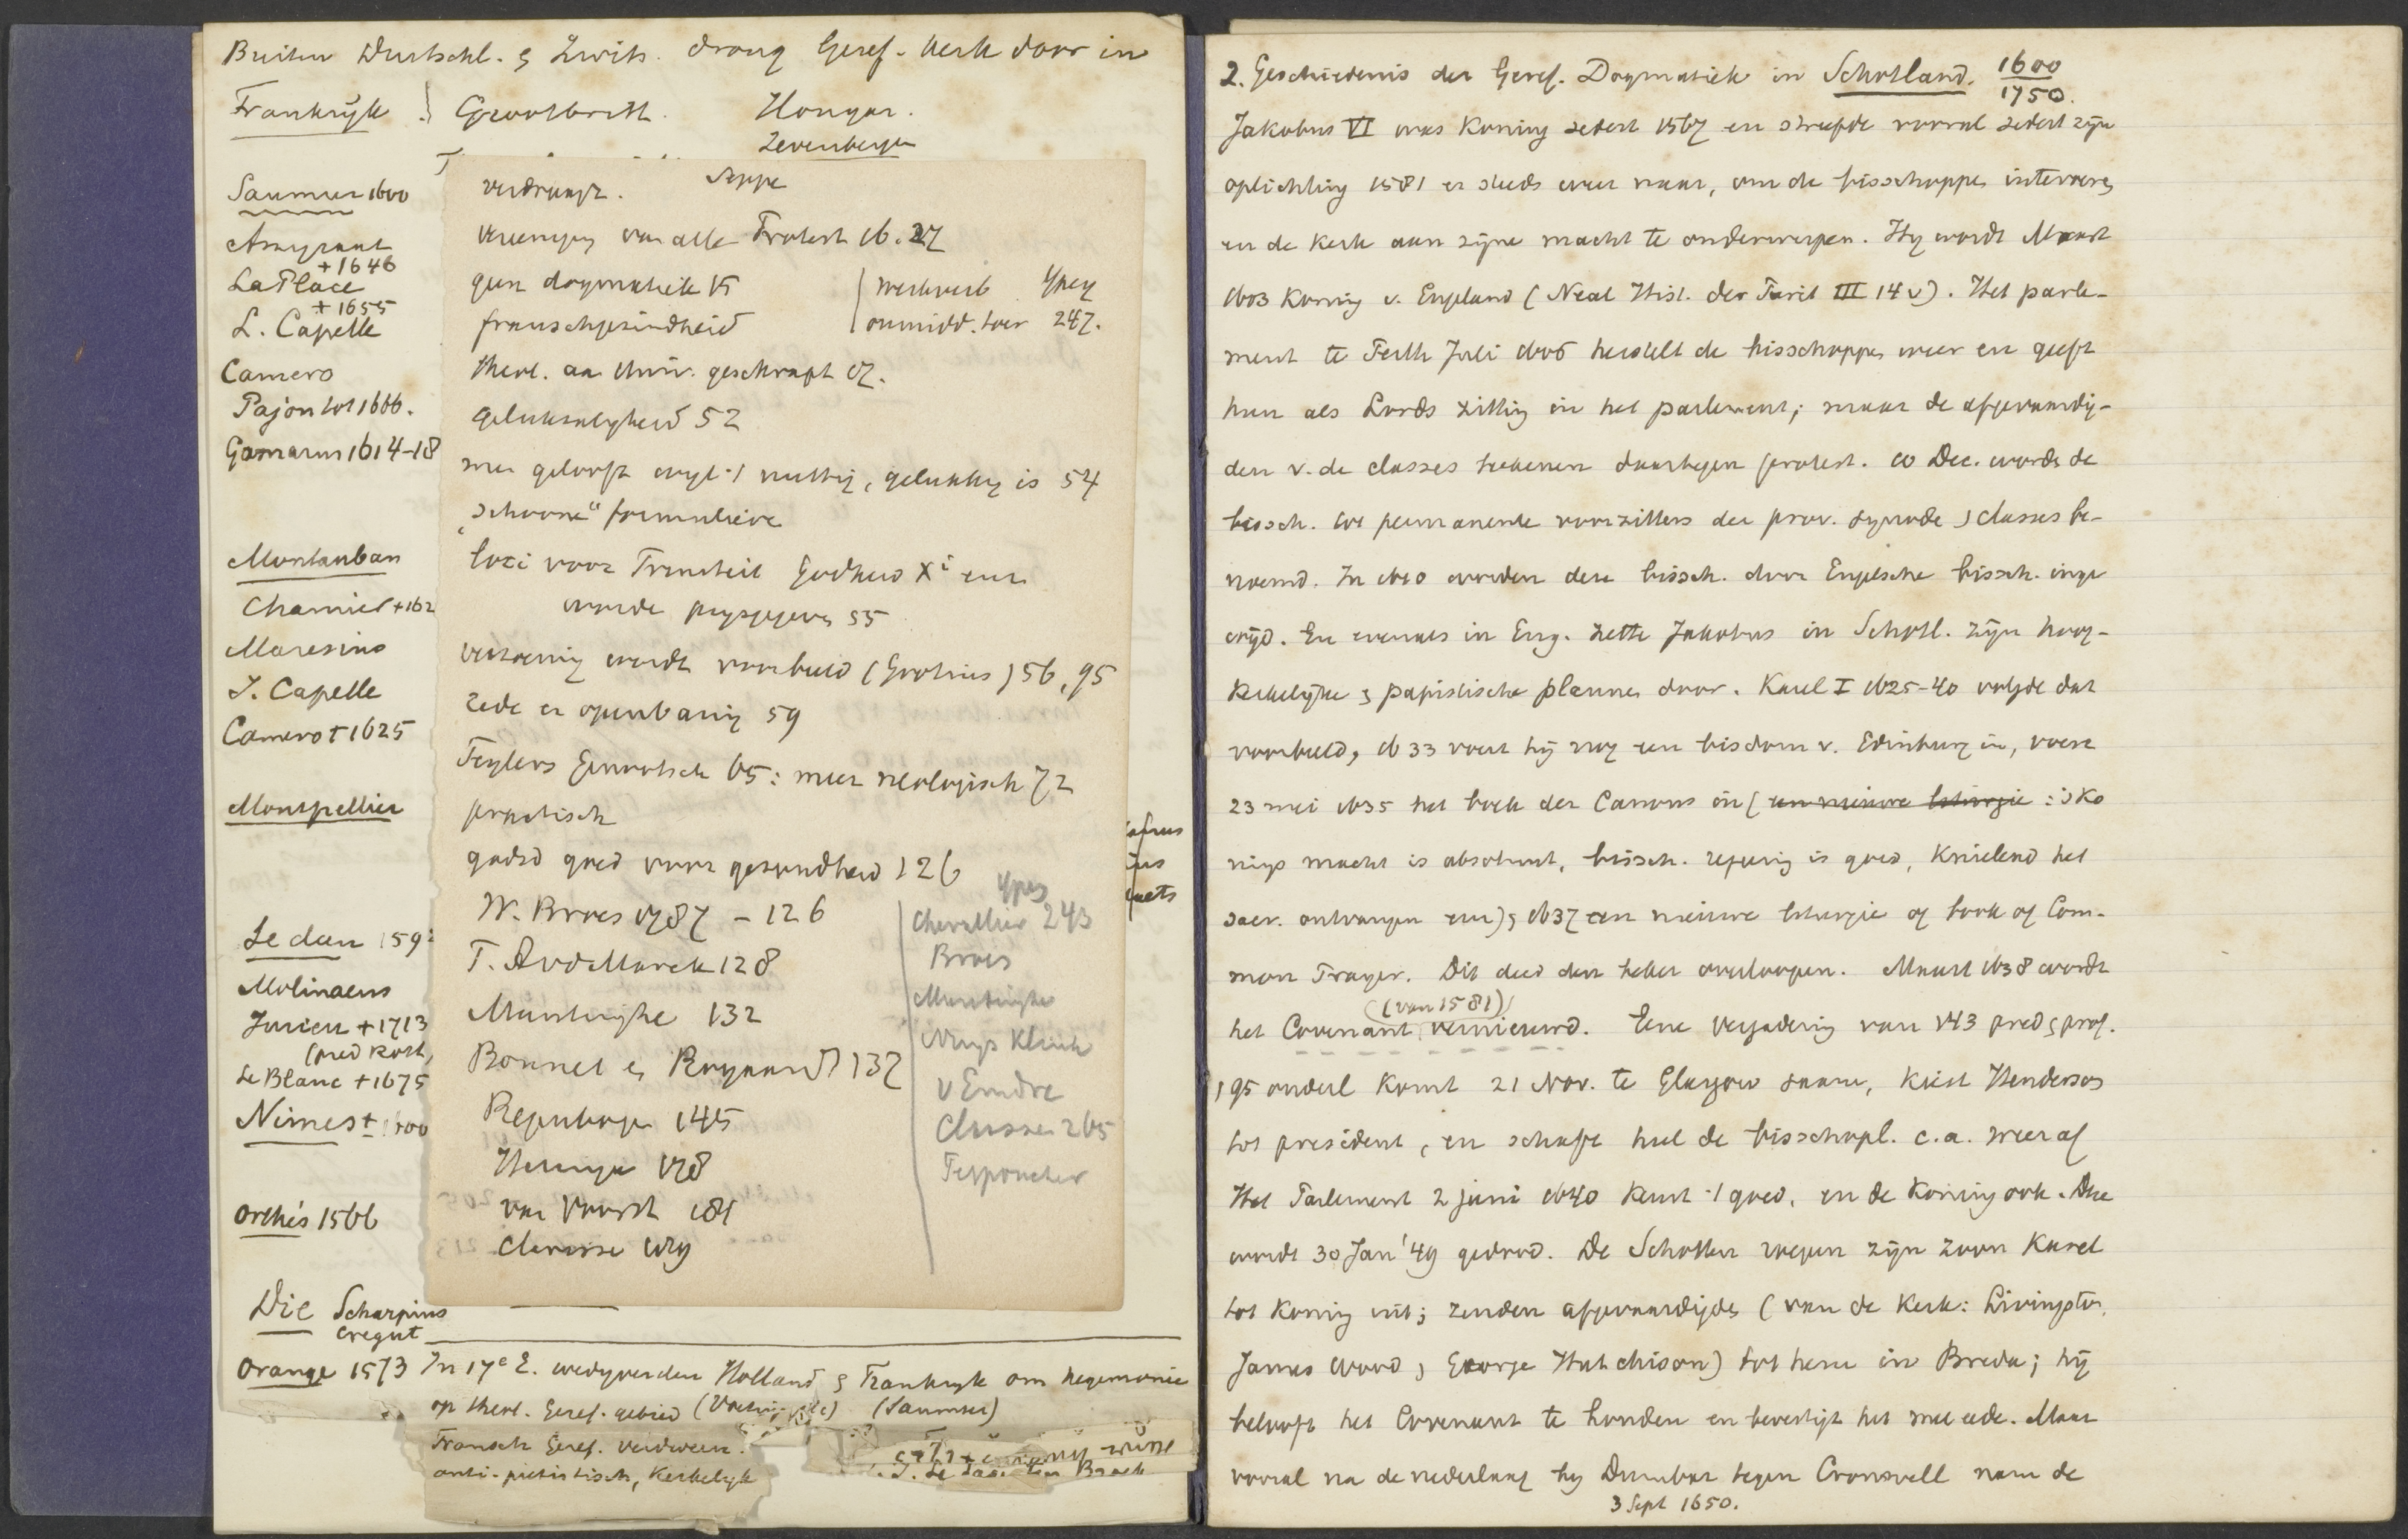 Buiten Duitschl. & Zwits. drong Geref. Kerk door in
Frankrijk } Grootbritt. Hongar.
Zevenbergen
Saumur 1600
Amyraut
+ 1646
La Place
+ 1655
L. Capelle
Camero
Pajon tot 1666.
Gomarus 1614-18
Montauban
Chamier + 162
Maresius
J. Capelle
Camero + 1625
Montpellier
Sedan 159
Molinaeus
Jurieu + 1713
(pred Rott.
Le Blanc + 1675
Nimes ± 1600
Orthés 1566
Die Scharpius
Cregut
Orange 1573 In 17e E. wedyverden Holland & Frankryk om hegemonie
op theol. Geref. gebied (Saumur)
Fransch Geref. verdween.
anti-piëtistisch, Kerkelyk
verdraagz. Seppe
vereeniging van alle Protest 16. 27
geen dogmatiek 15 | Werkverb Ypey
franschgezindheid | onmidd. leer 247.
theol. aan Univ. geschrapt 17.
Gelukzaligheid 52
men gelooft wyl 't nuttig, gelukkig is 54
"schoone" formulieren
loci voor Triniteit Godheid Xi enz
worden prysgegeven 55
verzoening wordt voorbeeld (Grotius) 56, 95
rede en openbaring 59
Teylers Genootsch 65: meer neologisch 72
practisch
godsd goed voor gezondheid 126
W. Broes 1787 - 126
T. A vd Marck 128
Muntinghe 132
Bonnet en Royaards 137
Regenbogen 145
Heringa 178
van Voorst 181
Clarisse 179
Ypey
Chevallier 243
Broes
Muntinghe
Nuys Klink
v Emdre
Classen 265
Perponcher
2. Geschiedenis der Geref. Dogmatiek in Schotland. 1600
1750.
Jakobus VI was Koning sedert 1567 en streefde vooral sedert zijn
oplichting 1581 er steeds weer naar, om de bisschoppen intevoeren
en de Kerk aan zijne macht te onderwerpen. Hy wordt Maart
1603 Koning v. Engeland (Neal Hist. der Purit III 14 v). Het parle-
ment te Perth Juli 1606 herstelt de bisschoppen weer en geeft
hun als Lords zitting in het parlement; maar de afgevaardig-
den v. de classes teekenen daartegen protest. 10 Dec. worden de
bissch. tot permanente voorzitters der prov. synode & classes be-
noemd. In 1610 worden deze bissch. door Engelsche bissch. inge
wijd. En evenals in Eng. zette Jakobus in Schotl. zijn hoog-
kerkelijke & papistische plannen door. Karel I 1625-40 volgde dat
voorbeeld, 1633 voert hij nog een bisdom v. Edinburg in, voert
23 mei 1635 het boek der Canons in (een nieuwe liturgie : 's Ko
nings macht is absoluut, bissch. regering is goed, Knielend het
sacr. ontvangen enz) & 1637 een nieuwe liturgie of book of Com-
mon Prayer. Dit deed den beker overloopen. Maart 1638 wordt
(van 1581)
het Covenant vernieuwd. Eene vergadering van 143 pred & prof.
& 95 ouderl komt 21 Nov. te Glasgow saam, Kiest Henderson
tot president, en schaft heel de bisschopl. c.a. weer af
Het Parlement 2 juni 1640 keurt 't goed, en de Koning ook. Deze
wordt 30 Jan '49 gedood. De Schotten roepen zijn zoon Karel
tot Koning uit; zenden afgevaardigden (van de Kerk: Livingston,
James Wood & George Hutchison) tot hem in Breda; hij
belooft het Covenant te houden en bevestigt het met eede. Maar
vooral na de nederlaag by Dunbar tegen Cromwell nam de
3 Sept 1650.